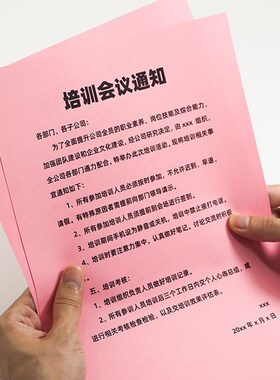 培训会议通知
各部门、各子公司：
为了全面提升公司全员的职业素养、岗位技能及综合能力，
加强团队建设和企业文化建设，经公司研究决定，由 xxx 组织，
全公司各部门通力配合，特举办此次培训活动，现将培训相关事
宜通知如下：
1、所有参加培训人员必须按时参加，不允许迟到、早退、
请假，有特殊原因者需提前向部门领导请示。
2、所有参加培训人员须提前到会场进行签到。
3、培训期间手机设为静音或关机，培训中禁止接打电话。
4、培训时要注意力集中，认真做好笔记，讨论交流时积极
五、培训考核：
1、培训组织负责人员做好培训记录。
2、所有参训人员培训后三个工作日内交个人心得总结，或
进行相关考核检查检验，以及交培训效果评估表。
xxx
20xx 年 x 月 x 日